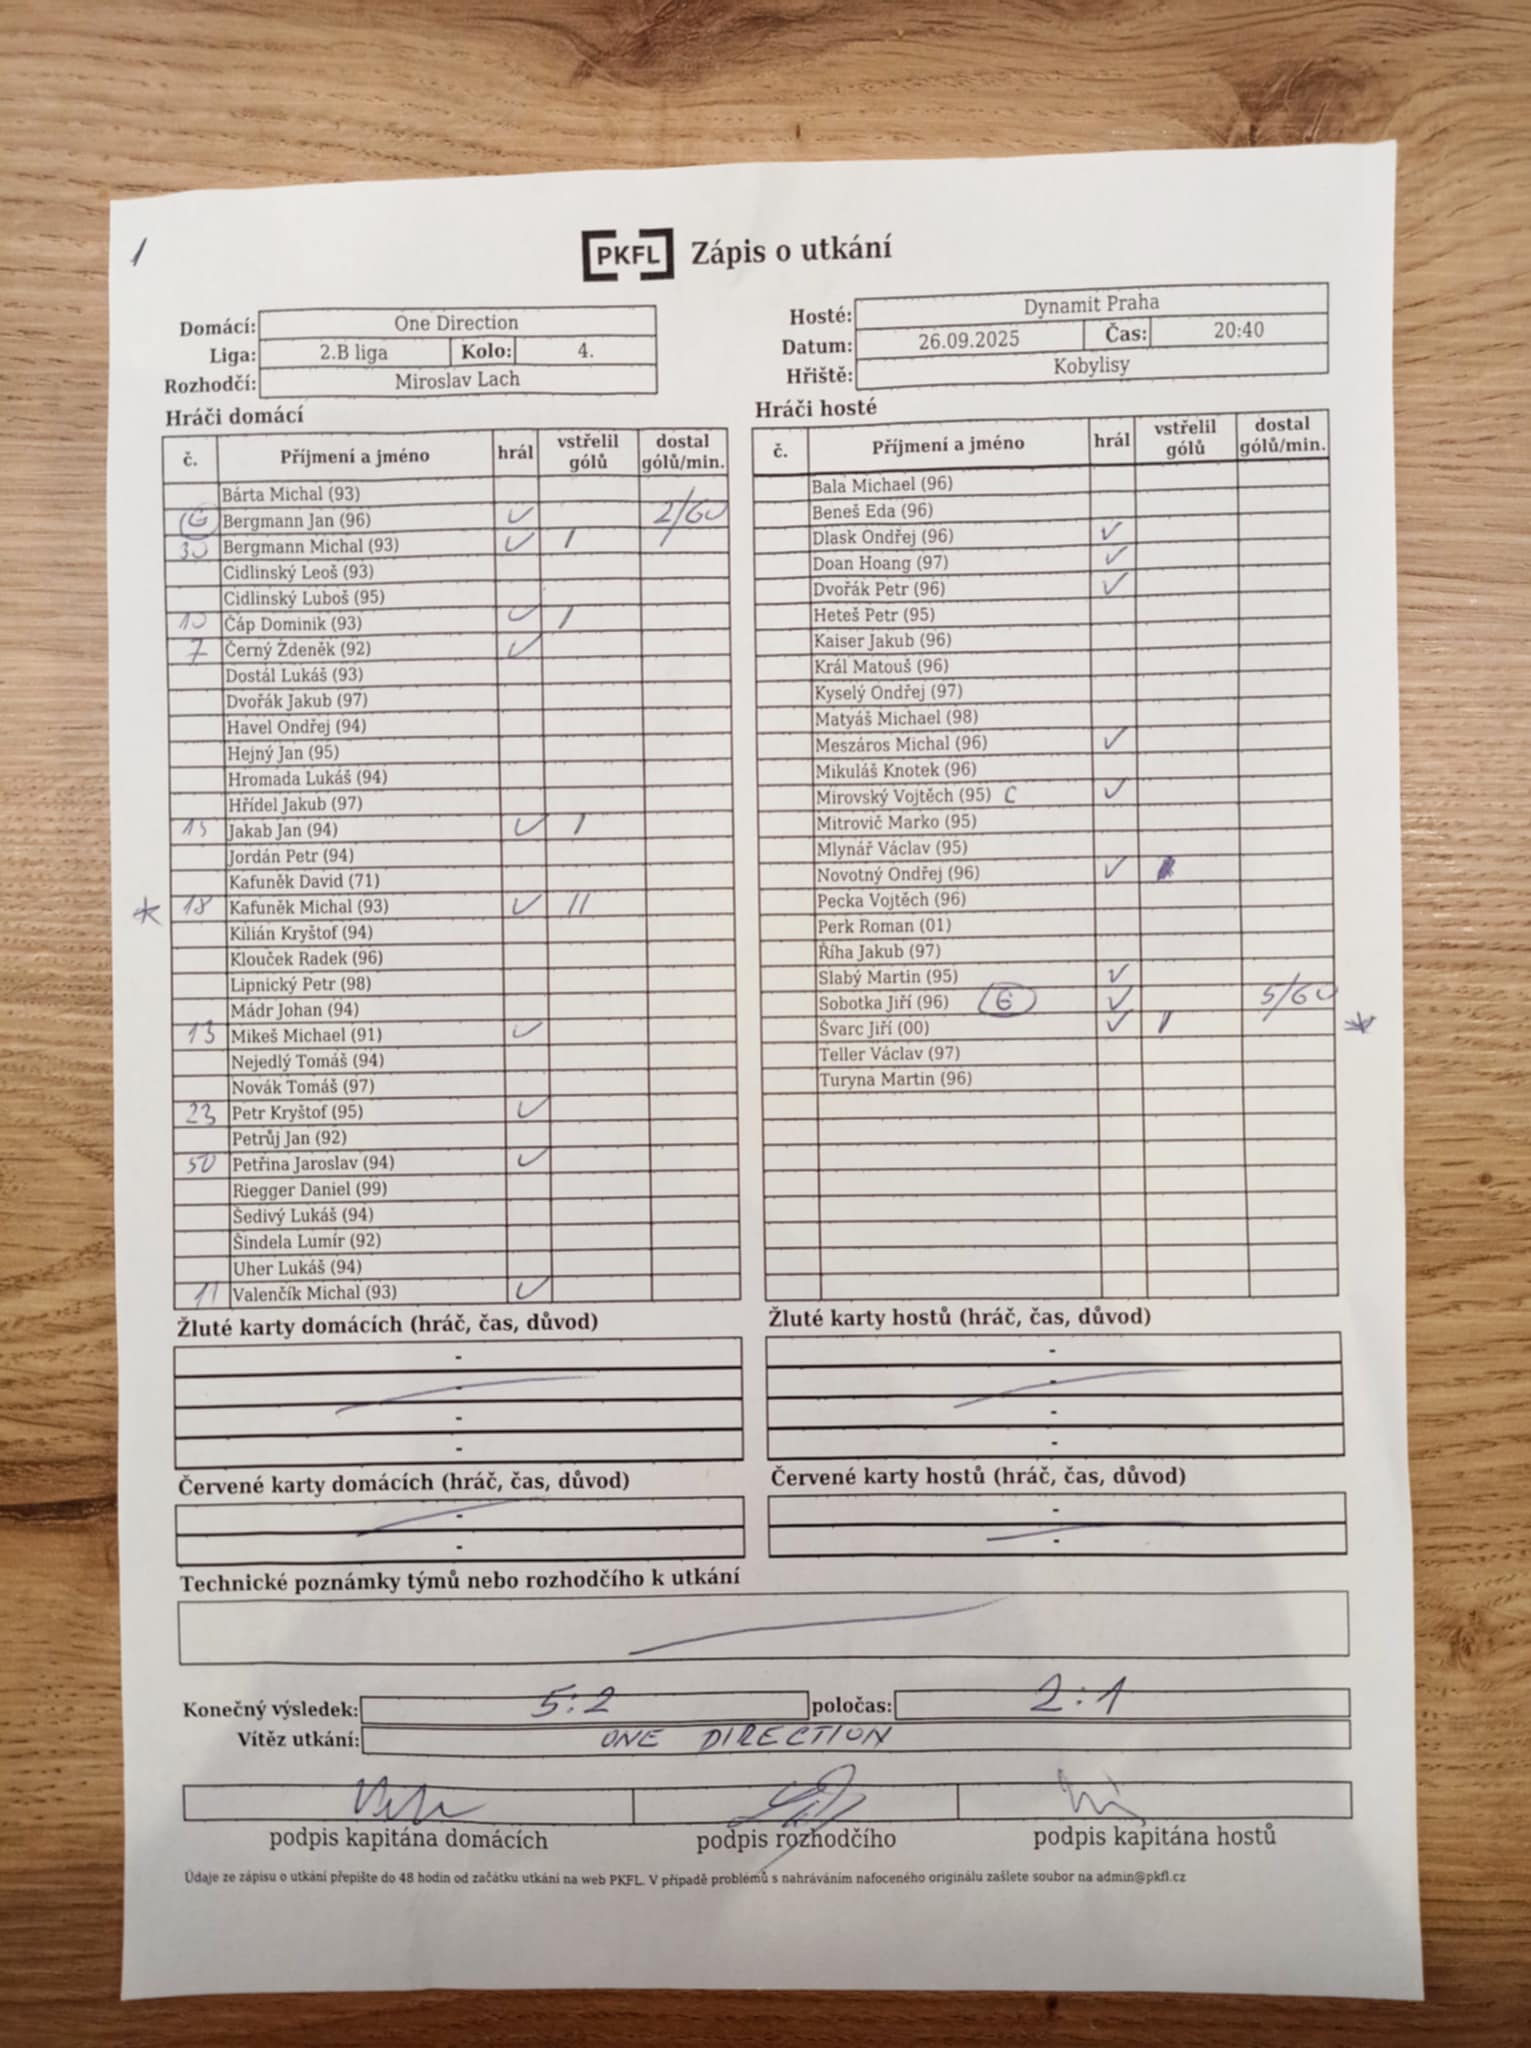 1
PKFL Zápis o utkání
Domácí: One Direction
Liga: 2.B liga Kolo: 4.
Rozhodčí: Miroslav Lach
Hosté: Dynamit Praha
Datum: 26.09.2025 Čas: 20:40
Hřiště: Kobylisy
Hráči domácí
č. Příjmení a jméno hrál vstřelil gólů dostal gólů/min.
Bárta Michal (93)
G Bergmann Jan (96) ✓ 2/60
30 Bergmann Michal (93) ✓ I
Cidlinský Leoš (93)
Cidlinský Luboš (95)
10 Čáp Dominik (93) ✓ I
7 Černý Zdeněk (92) ✓
Dostál Lukáš (93)
Dvořák Jakub (97)
Havel Ondřej (94)
Hejný Jan (95)
Hromada Lukáš (94)
Hřídel Jakub (97)
15 Jakab Jan (94) ✓ I
Jordán Petr (94)
Kafuněk David (71)
* 18 Kafuněk Michal (93) ✓ II
Kilián Kryštof (94)
Klouček Radek (96)
Lipnický Petr (98)
Mádr Johan (94)
13 Mikeš Michael (91) ✓
Nejedlý Tomáš (94)
Novák Tomáš (97)
23 Petr Kryštof (95) ✓
Petrůj Jan (92)
50 Petřina Jaroslav (94) ✓
Riegger Daniel (99)
Šedivý Lukáš (94)
Šindela Lumír (92)
Uher Lukáš (94)
11 Valenčík Michal (93) ✓
Hráči hosté
č. Příjmení a jméno hrál vstřelil gólů dostal gólů/min.
Bala Michael (96)
Beneš Eda (96)
Dlask Ondřej (96) ✓
Doan Hoang (97) ✓
Dvořák Petr (96) ✓
Heteš Petr (95)
Kaiser Jakub (96)
Král Matouš (96)
Kyselý Ondřej (97)
Matyáš Michael (98)
Meszáros Michal (96) ✓
Mikuláš Knotek (96)
Mirovský Vojtěch (95) C ✓
Mitrovič Marko (95)
Mlynář Václav (95)
Novotný Ondřej (96) ✓
Pecka Vojtěch (96)
Perk Roman (01)
Říha Jakub (97)
Slabý Martin (95) ✓
Sobotka Jiří (96) G ✓ 5/60
Švarc Jiří (00) ✓ I *
Teller Václav (97)
Turyna Martin (96)
Žluté karty domácích (hráč, čas, důvod)
-
-
-
-
Žluté karty hostů (hráč, čas, důvod)
-
-
-
-
Červené karty domácích (hráč, čas, důvod)
-
-
Červené karty hostů (hráč, čas, důvod)
-
-
Technické poznámky týmů nebo rozhodčího k utkání
Konečný výsledek: 5:2 poločas: 2:1
Vítěz utkání: ONE DIRECTION
podpis kapitána domácích podpis rozhodčího podpis kapitána hostů
Údaje ze zápisu o utkání přepište do 48 hodin od začátku utkání na web PKFL. V případě problémů s nahráváním nafoceného originálu zašlete soubor na admin@pkfl.cz